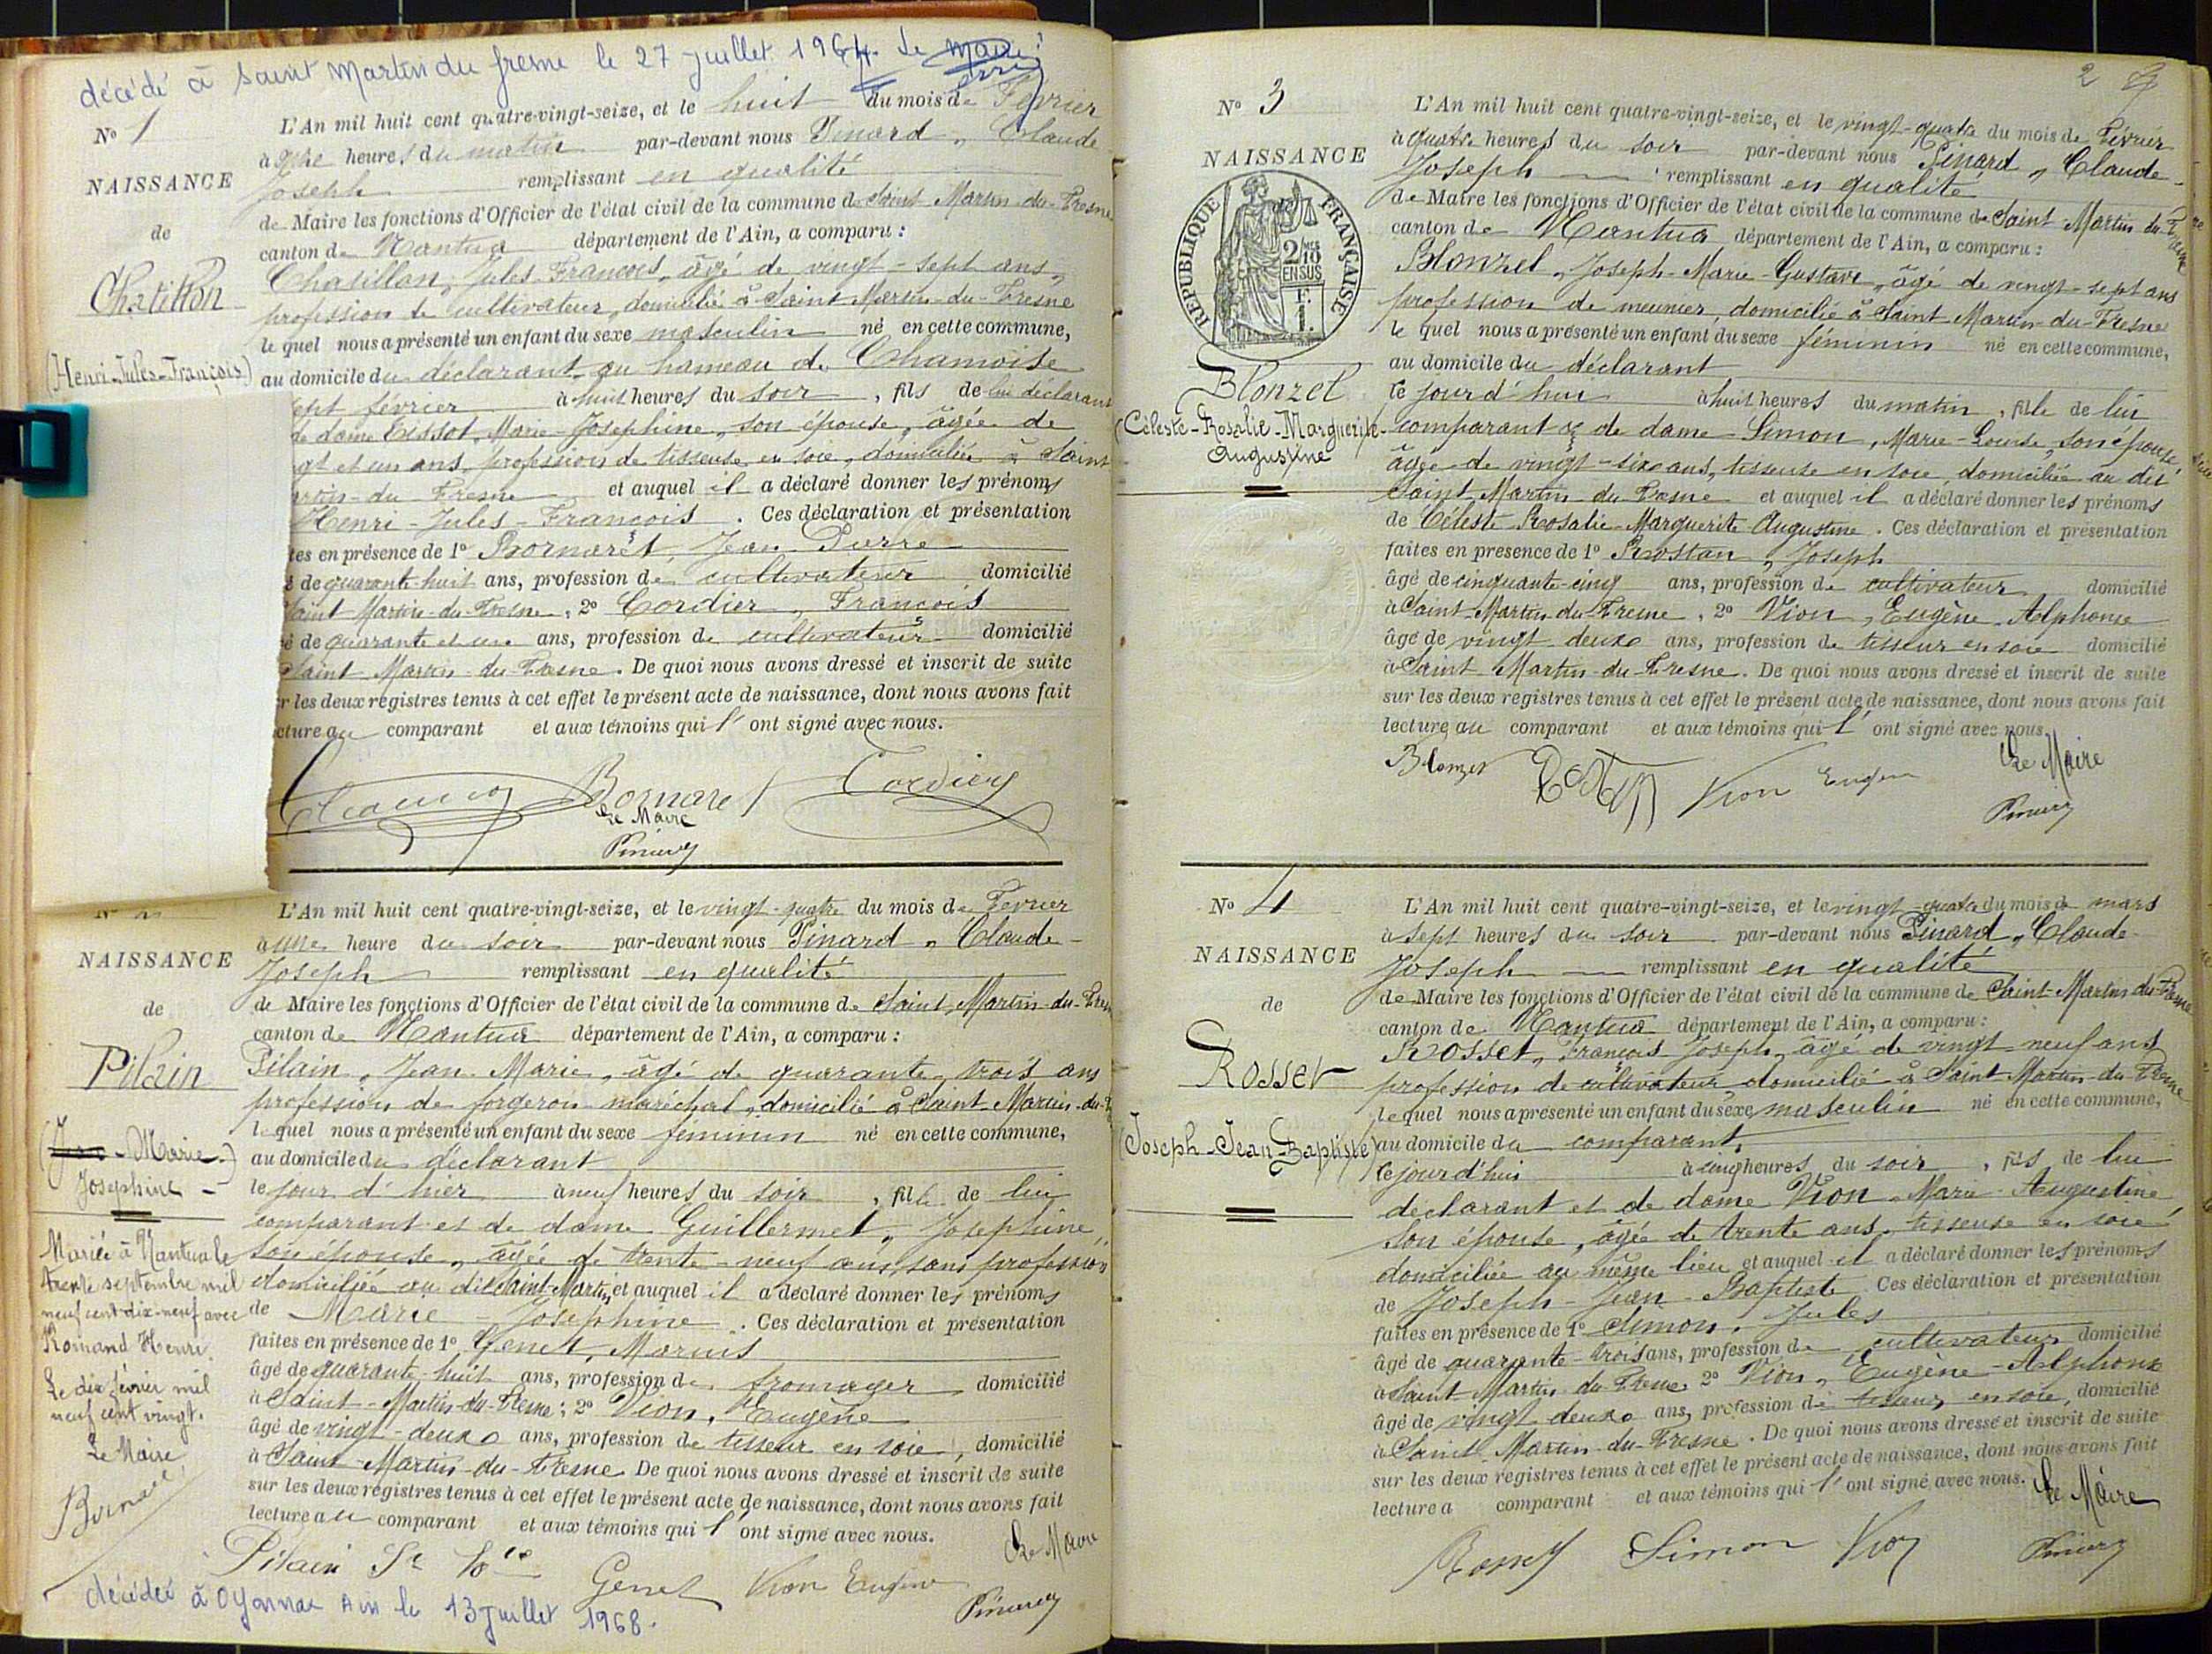 décédé à Saint Martin du fresne le 27 juillet 1964. Le Maire
N° 1
NAISSANCE
de
Chatillon
(Henri-Jules-François)
L'An mil huit cent quatre-vingt-seize, et le huit du mois de Février
à onze heures du matin par-devant nous Pinard, Claude-
Joseph remplissant en qualité
de Maire les fonctions d'Officier de l'état civil de la commune de Saint Martin-du-Fresne
canton de Nantua département de l'Ain, a comparu :
Chatillon, Jules-François, âgé de vingt-sept ans,
profession de cultivateur, domicilié à Saint Martin-du-Fresne
le quel nous a présenté un enfant du sexe masculin né en cette commune,
au domicile du déclarant au hameau de Chamoise
ept février à huit heures du soir, fils de lui déclarant
de dame Tissot, Marie-Joséphine, son épouse, âgée de
gt et un ans, profession de tisseuse en soie, domiciliée à Saint
du Fresne et auquel il a déclaré donner les prénoms
Henri-Jules-François. Ces déclaration et présentation
tes en présence de 1° Bornaret, Jean Pierre
é de quarante huit ans, profession de cultivateur domicilié
Saint Martin-du-Fresne, 2° Cordier, François
é de quarante et un ans, profession de cultivateur domicilié
Saint Martin-du-Fresne. De quoi nous avons dressé et inscrit de suite
r les deux registres tenus à cet effet le présent acte de naissance, dont nous avons fait
cture au comparant et aux témoins qui l'ont signé avec nous.
Bornaret Cordier
Le Maire
NAISSANCE
de
Pilain
(Marie-)
Joséphine -
Mariée à Nantua le
trente septembre mil
neuf cent dix-neuf avec
Romand Henri.
Le dix février mil
neuf cent vingt.
Le Maire
L'An mil huit cent quatre-vingt-seize, et le vingt-quatre du mois de Février
à une heure du soir par-devant nous Pinard, Claude-
Joseph remplissant en qualité
de Maire les fonctions d'Officier de l'état civil de la commune de Saint Martin-du-Fresne
canton de Nantua département de l'Ain, a comparu :
Pilain, Jean Marie, âgé de quarante trois ans
profession de forgeron maréchal, domicilié à Saint-Martin-du-
le quel nous a présenté un enfant du sexe féminin né en cette commune,
au domicile du déclarant
le jour d'hier à neuf heures du soir, fille de lui
comparant et de dame Guillermet, Joséphine,
son épouse, âgée de trente-neuf ans, sans profession
domiciliée au dit Saint-Martin, et auquel il a déclaré donner les prénoms
de Marie-Joséphine. Ces déclaration et présentation
faites en présence de 1° Genet, Marius
âgé de quarante-huit ans, profession de fromager domicilié
à Saint-Martin-du-Fresne; 2° Vion, Eugène
âgé de vingt-deux ans, profession de tisseur en soie, domicilié
à Saint-Martin-du-Fresne. De quoi nous avons dressé et inscrit de suite
sur les deux registres tenus à cet effet le présent acte de naissance, dont nous avons fait
lecture au comparant et aux témoins qui l'ont signé avec nous.
Pilain Genet Vion Eugène Le Maire
décédée à Oyonnax Ain le 13 juillet 1968.
2
N° 3
NAISSANCE
RÉPUBLIQUE FRANÇAISE
2/10 EN SUS
1 F.
Blonzel
(Céleste-Rosalie-Marguerite-
Augustine
L'An mil huit cent quatre-vingt-seize, et le vingt-quatre du mois de Février
à quatre heures du soir par-devant nous Pinard, Claude-
Joseph remplissant en qualité
de Maire les fonctions d'Officier de l'état civil de la commune de Saint Martin-du-Fresne
canton de Nantua département de l'Ain, a comparu :
Blonzel, Joseph-Marie-Gustave, âgé de vingt-sept ans
profession de meunier, domicilié à Saint Martin-du-Fresne
le quel nous a présenté un enfant du sexe féminin né en cette commune,
au domicile du déclarant
ce jourd'hui à huit heures du matin, fille de lui
comparant & de dame Simon, Marie-Louise, son épouse,
âgée de vingt-six ans, tisseuse en soie, domiciliée au dit
Saint Martin du Fresne et auquel il a déclaré donner les prénoms
de Céleste Rosalie-Marguerite Augustine. Ces déclaration et présentation
faites en présence de 1° Rostan, Joseph
âgé de cinquante-cinq ans, profession de cultivateur domicilié
à Saint-Martin du Fresne, 2° Vion, Eugène-Alphonse
âgé de vingt deux ans, profession de tisseur en soie domicilié
à Saint-Martin-du-Fresne. De quoi nous avons dressé et inscrit de suite
sur les deux registres tenus à cet effet le présent acte de naissance, dont nous avons fait
lecture au comparant et aux témoins qui l'ont signé avec nous.
Blonzel Vion Eugène Le Maire
N° 4
NAISSANCE
de
Rosset
(Joseph-Jean-Baptiste)
L'An mil huit cent quatre-vingt-seize, et le vingt-quatre du mois de mars
à sept heures du soir par-devant nous Pinard, Claude-
Joseph remplissant en qualité
de Maire les fonctions d'Officier de l'état civil de la commune de Saint-Martin-du-Fresne
canton de Nantua département de l'Ain, a comparu :
Rosset, François Joseph, âgé de vingt-neuf ans
profession de cultivateur domicilié à Saint Martin-du-Fresne
lequel nous a présenté un enfant du sexe masculin né en cette commune,
au domicile du comparant,
ce jourd'hui à cinq heures du soir, fils de lui
déclarant et de dame Vion, Marie-Augustine
son épouse, âgée de trente ans, tisseuse en soie,
domiciliée au même lieu et auquel il a déclaré donner les prénoms
de Joseph-Jean-Baptiste Ces déclaration et présentation
faites en présence de 1° Simon, Jules
âgé de quarante-trois ans, profession de cultivateur domicilié
à Saint Martin du Fresne 2° Vion, Eugène-Alphonse
âgé de vingt deux ans, profession de tisseur en soie, domicilié
à Saint Martin-du-Fresne. De quoi nous avons dressé et inscrit de suite
sur les deux registres tenus à cet effet le présent acte de naissance, dont nous avons fait
lecture a comparant et aux témoins qui l'ont signé avec nous. Le Maire
Rosset Simon Vion